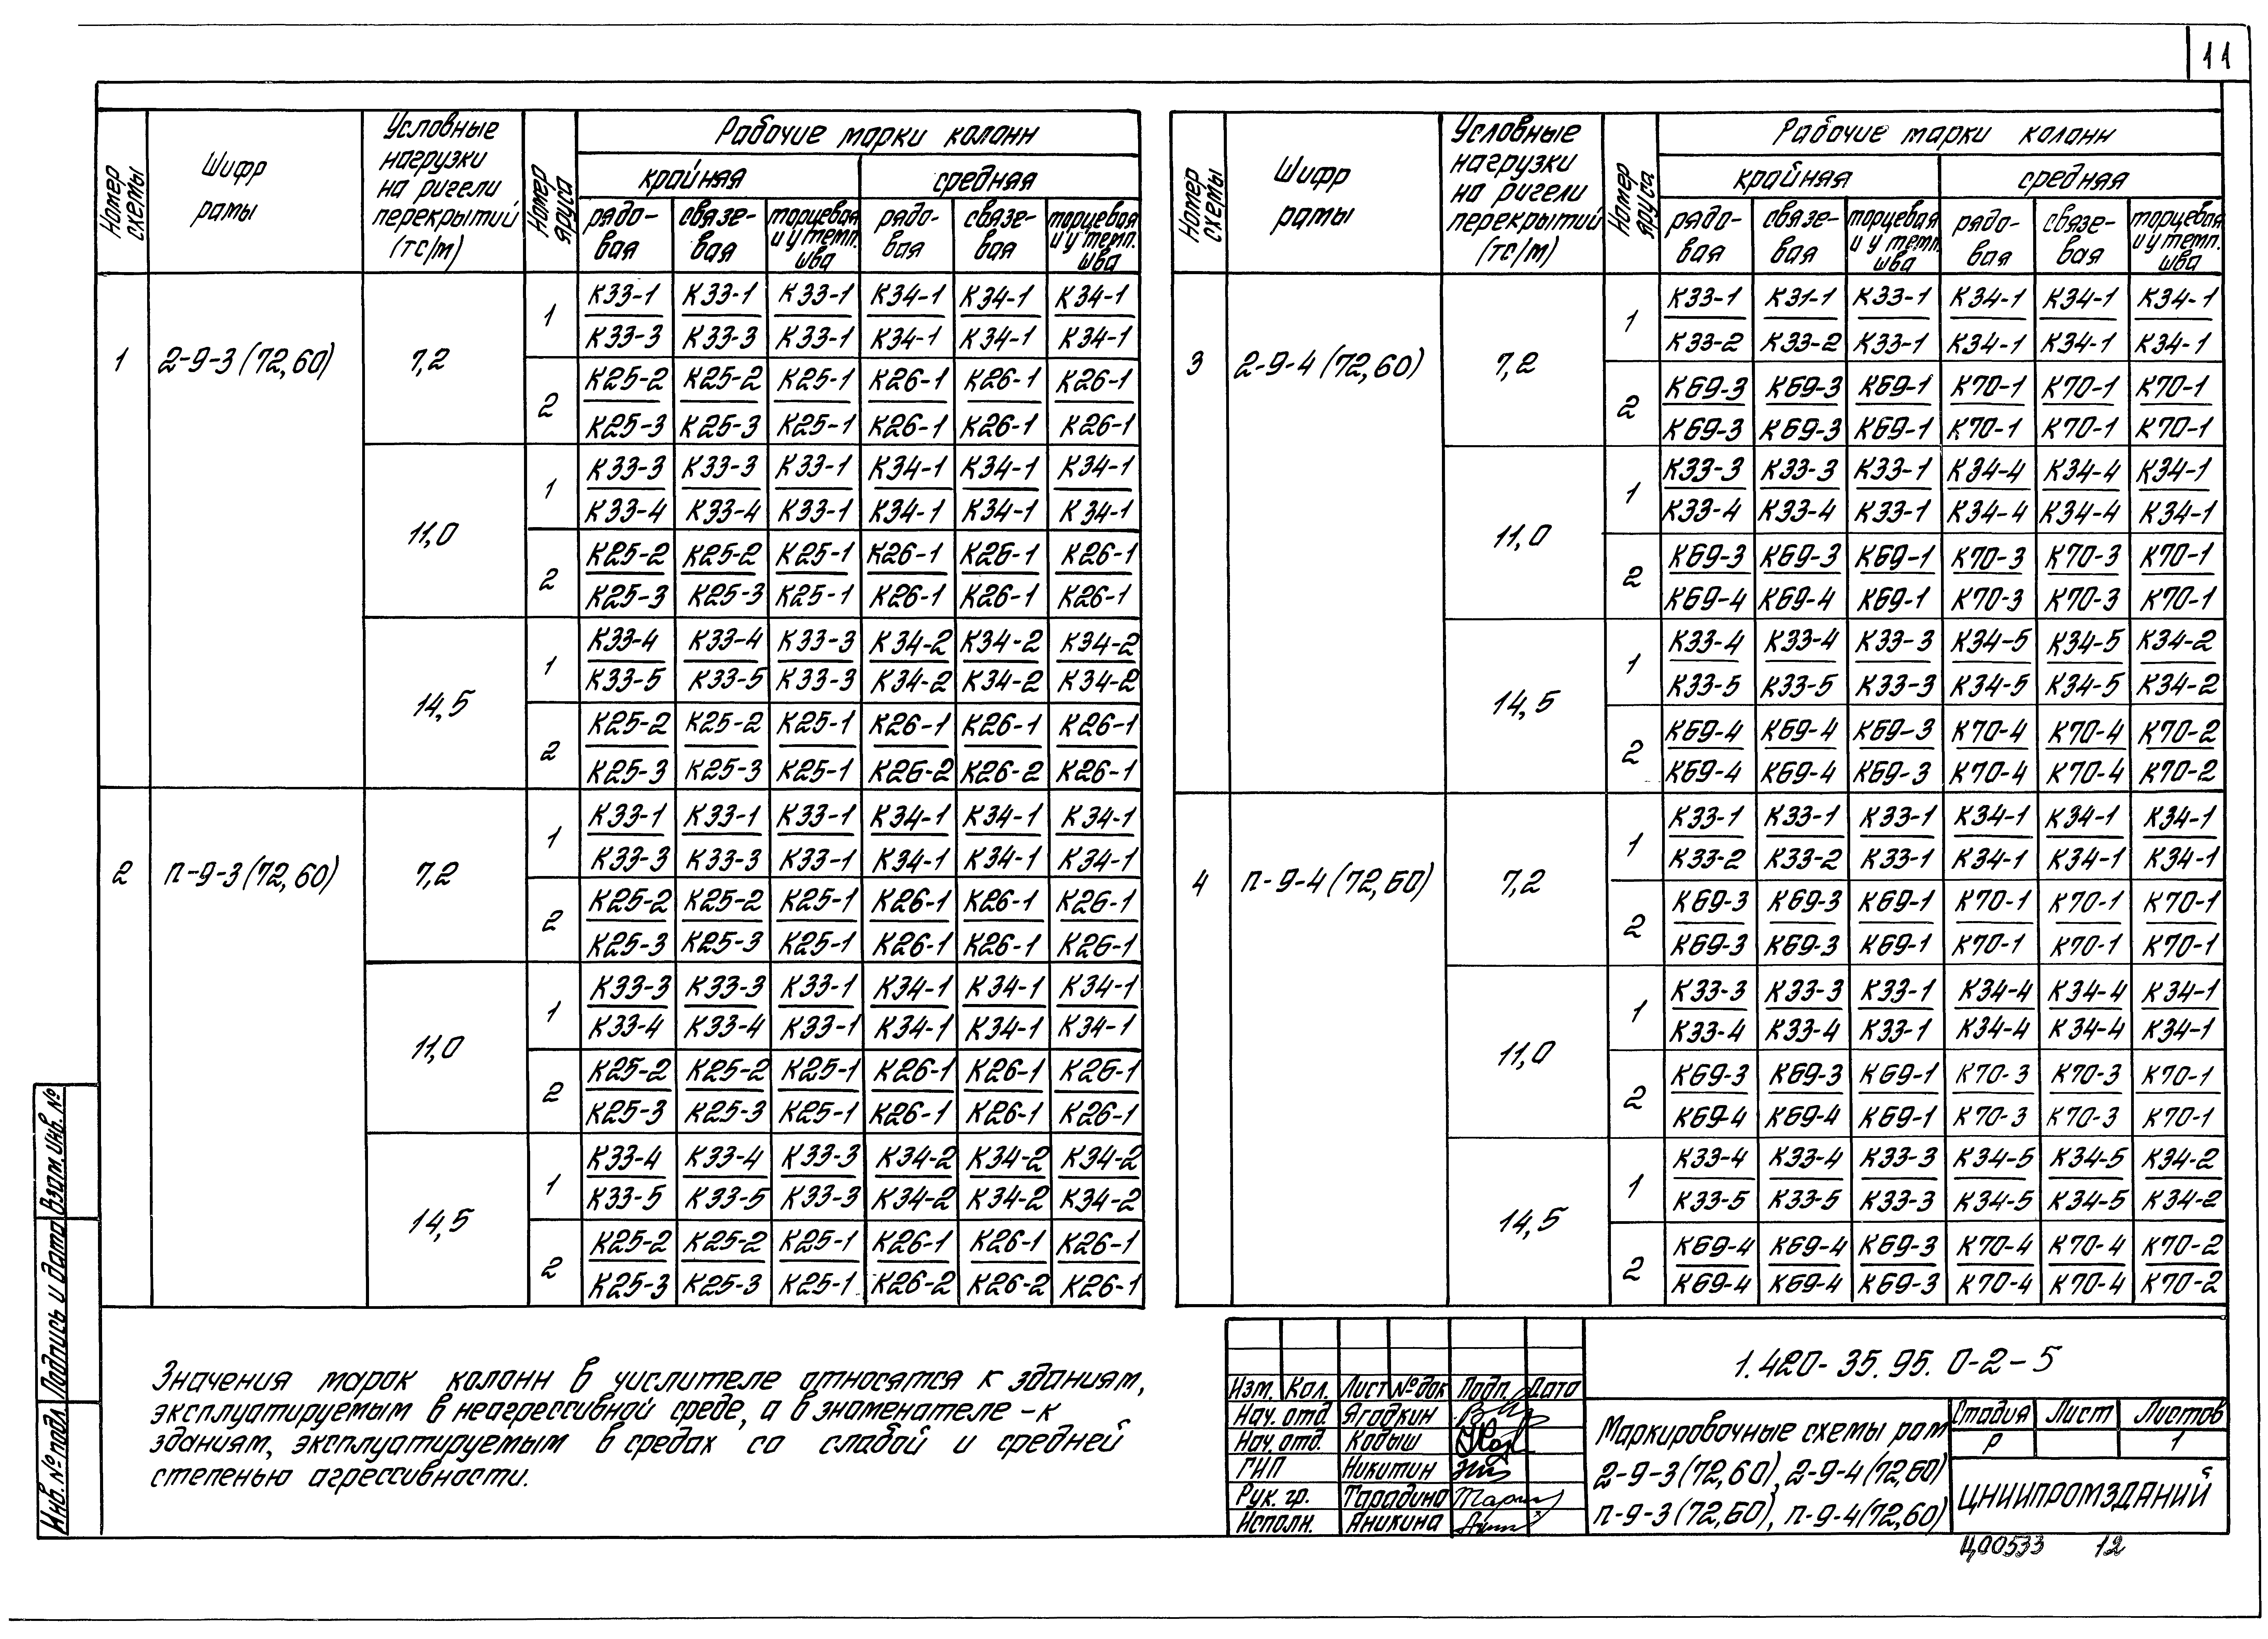 11
Номер схемы | Шифр рамы | Условные нагрузки на ригели перекрытий (тс/м) | Номер яруса | Рабочие марки колонн
крайняя | средняя
рядовая | связевая | торцевая и у темп. шва | рядовая | связевая | торцевая и у темп. шва
1 | 2-9-3 (72,60) | 7,2 | 1 | К33-1 | К33-1 | К33-1 | К34-1 | К34-1 | К34-1
К33-3 | К33-3 | К33-1 | К34-1 | К34-1 | К34-1
2 | К25-2 | К25-2 | К25-1 | К26-1 | К26-1 | К26-1
К25-3 | К25-3 | К25-1 | К26-1 | К26-1 | К26-1
11,0 | 1 | К33-3 | К33-3 | К33-1 | К34-1 | К34-1 | К34-1
К33-4 | К33-4 | К33-1 | К34-1 | К34-1 | К34-1
2 | К25-2 | К25-2 | К25-1 | К26-1 | К26-1 | К26-1
К25-3 | К25-3 | К25-1 | К26-1 | К26-1 | К26-1
14,5 | 1 | К33-4 | К33-4 | К33-3 | К34-2 | К34-2 | К34-2
К33-5 | К33-5 | К33-3 | К34-2 | К34-2 | К34-2
2 | К25-2 | К25-2 | К25-1 | К26-1 | К26-1 | К26-1
К25-3 | К25-3 | К25-1 | К26-2 | К26-2 | К26-1
2 | п-9-3 (72,60) | 7,2 | 1 | К33-1 | К33-1 | К33-1 | К34-1 | К34-1 | К34-1
К33-3 | К33-3 | К33-1 | К34-1 | К34-1 | К34-1
2 | К25-2 | К25-2 | К25-1 | К26-1 | К26-1 | К26-1
К25-3 | К25-3 | К25-1 | К26-1 | К26-1 | К26-1
11,0 | 1 | К33-3 | К33-3 | К33-1 | К34-1 | К34-1 | К34-1
К33-4 | К33-4 | К33-1 | К34-1 | К34-1 | К34-1
2 | К25-2 | К25-2 | К25-1 | К26-1 | К26-1 | К26-1
К25-3 | К25-3 | К25-1 | К26-1 | К26-1 | К26-1
14,5 | 1 | К33-4 | К33-4 | К33-3 | К34-2 | К34-2 | К34-2
К33-5 | К33-5 | К33-3 | К34-2 | К34-2 | К34-2
2 | К25-2 | К25-2 | К25-1 | К26-1 | К26-1 | К26-1
К25-3 | К25-3 | К25-1 | К26-2 | К26-2 | К26-1
Номер схемы | Шифр рамы | Условные нагрузки на ригели перекрытий (тс/м) | Номер яруса | Рабочие марки колонн
крайняя | средняя
рядовая | связевая | торцевая и у темп. шва | рядовая | связевая | торцевая и у темп. шва
3 | 2-9-4 (72,60) | 7,2 | 1 | К33-1 | К31-1 | К33-1 | К34-1 | К34-1 | К34-1
К33-2 | К33-2 | К33-1 | К34-1 | К34-1 | К34-1
2 | К69-3 | К69-3 | К69-1 | К70-1 | К70-1 | К70-1
К69-3 | К69-3 | К69-1 | К70-1 | К70-1 | К70-1
11,0 | 1 | К33-3 | К33-3 | К33-1 | К34-4 | К34-4 | К34-1
К33-4 | К33-4 | К33-1 | К34-4 | К34-4 | К34-1
2 | К69-3 | К69-3 | К69-1 | К70-3 | К70-3 | К70-1
К69-4 | К69-4 | К69-1 | К70-3 | К70-3 | К70-1
14,5 | 1 | К33-4 | К33-4 | К33-3 | К34-5 | К34-5 | К34-2
К33-5 | К33-5 | К33-3 | К34-5 | К34-5 | К34-2
2 | К69-4 | К69-4 | К69-3 | К70-4 | К70-4 | К70-2
К69-4 | К69-4 | К69-3 | К70-4 | К70-4 | К70-2
4 | п-9-4 (72,60) | 7,2 | 1 | К33-1 | К33-1 | К33-1 | К34-1 | К34-1 | К34-1
К33-2 | К33-2 | К33-1 | К34-1 | К34-1 | К34-1
2 | К69-3 | К69-3 | К69-1 | К70-1 | К70-1 | К70-1
К69-3 | К69-3 | К69-1 | К70-1 | К70-1 | К70-1
11,0 | 1 | К33-3 | К33-3 | К33-1 | К34-4 | К34-4 | К34-1
К33-4 | К33-4 | К33-1 | К34-4 | К34-4 | К34-1
2 | К69-3 | К69-3 | К69-1 | К70-3 | К70-3 | К70-1
К69-4 | К69-4 | К69-1 | К70-3 | К70-3 | К70-1
14,5 | 1 | К33-4 | К33-4 | К33-3 | К34-5 | К34-5 | К34-2
К33-5 | К33-5 | К33-3 | К34-5 | К34-5 | К34-2
2 | К69-4 | К69-4 | К69-3 | К70-4 | К70-4 | К70-2
К69-4 | К69-4 | К69-3 | К70-4 | К70-4 | К70-2
Значения марок колонн в числителе относятся к зданиям,
эксплуатируемым в неагрессивной среде, а в знаменателе – к
зданиям, эксплуатируемым в средах со слабой и средней
степенью агрессивности.
Взам. инв. №
Подпись и дата
Инв. № подл
1.420-35.95. 0-2-5
Изм. Кол. Лист № док Подп. Дата
Нач. отд. Ягодкин
Нач. отд. Кодыш
ГИП Никитин
Рук. гр. Тарадина
Исполн. Аникина
Маркировочные схемы рам
2-9-3 (72,60), 2-9-4 (72,60)
п-9-3 (72,60), п-9-4 (72,60)
Стадия Лист Листов
Р 1
ЦНИИПРОМЗДАНИЙ
Ц00533 12